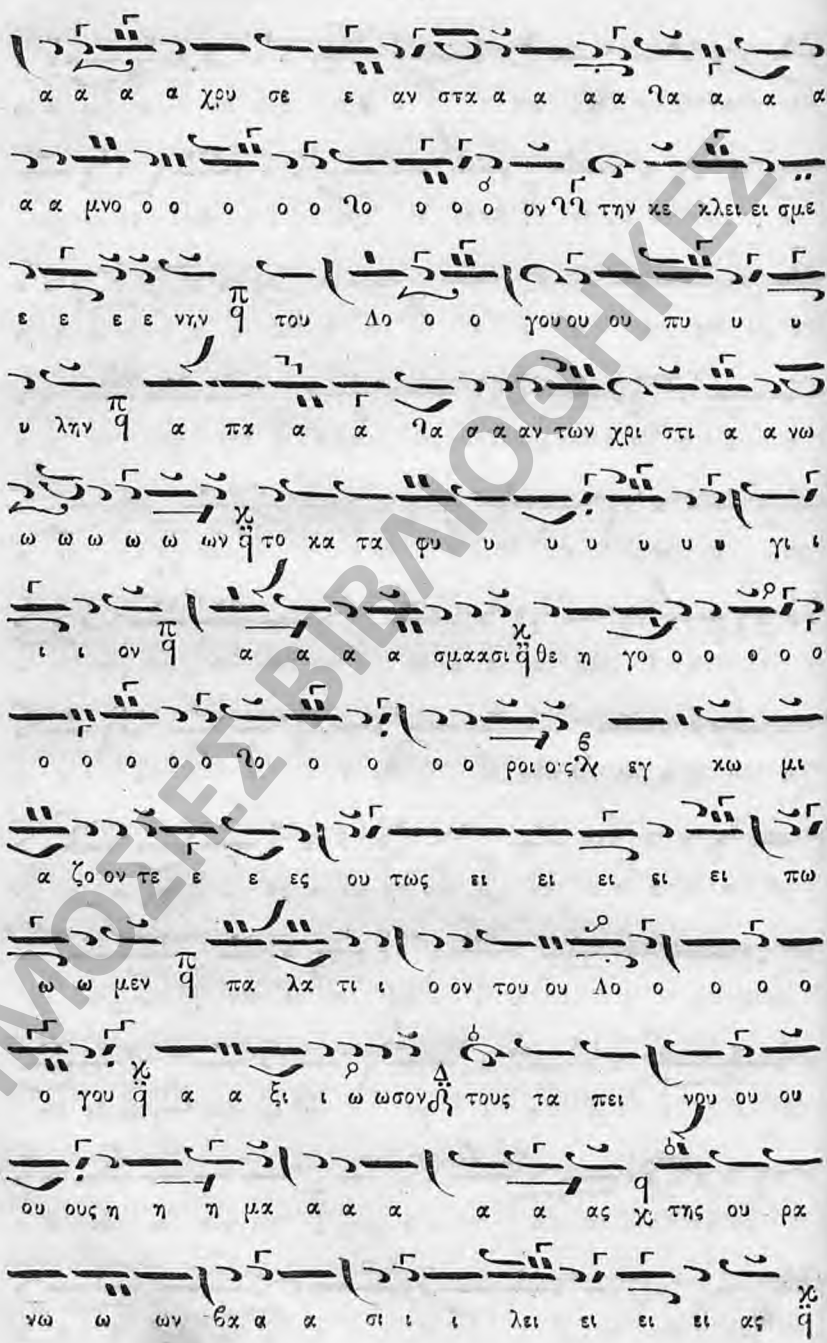 α α α α χρυ σε ε αν στα α α α α λα α α α
α α μνο ο ο ο ο ο λο ο ο ο ον την κε κλει ει σμε
ε ε ε ε νην π q του Λο ο ο γου ου ου πυ υ υ
υ λην π q α πα α α λα α α αν των χρι στι α α νω
ω ω ω ω ω ων χ q το κα τα φυ υ υ υ υ υ υ γι ι
ι ι ον π q α α α α σμα α σι χ q θε η γο ο ο ο ο ο
ο ο ο ο ο λο ο ο ο ο ροι ο ς εγ κω μι
α ζο ον τε ε ε ες ου τως ει ει ει ει ει πω
ω ω μεν π q πα λα τι ι ο ον του ου Λο ο ο ο ο
ο γου χ q α α ξι ι ω ω σον Δ τους τα πει νου ου ου
ου ους η η η μα α α α α α ας q χ της ου ρα
νω ω ων βα α α σι ι ι λει ει ει ει ας χ q
ΔΗΜΟΣΙΕΣ ΒΙΒΛΙΟΘΗΚΕΣ